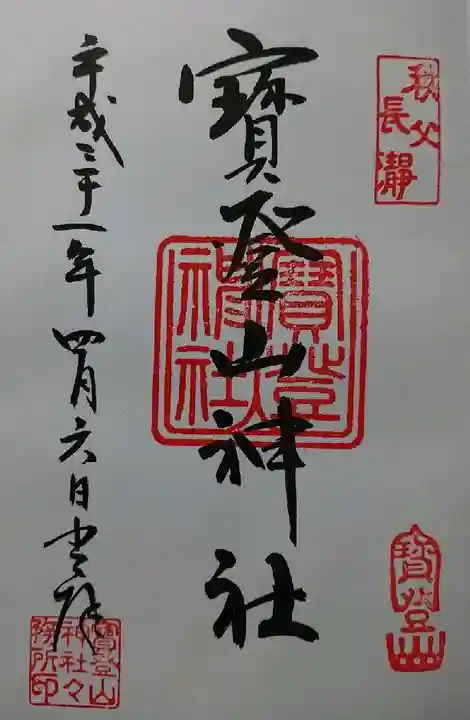 秩父
長瀞
寶登山神社
寶登山神社
寶登山
平成三十一年四月六日
寶登山
神社々
務所印